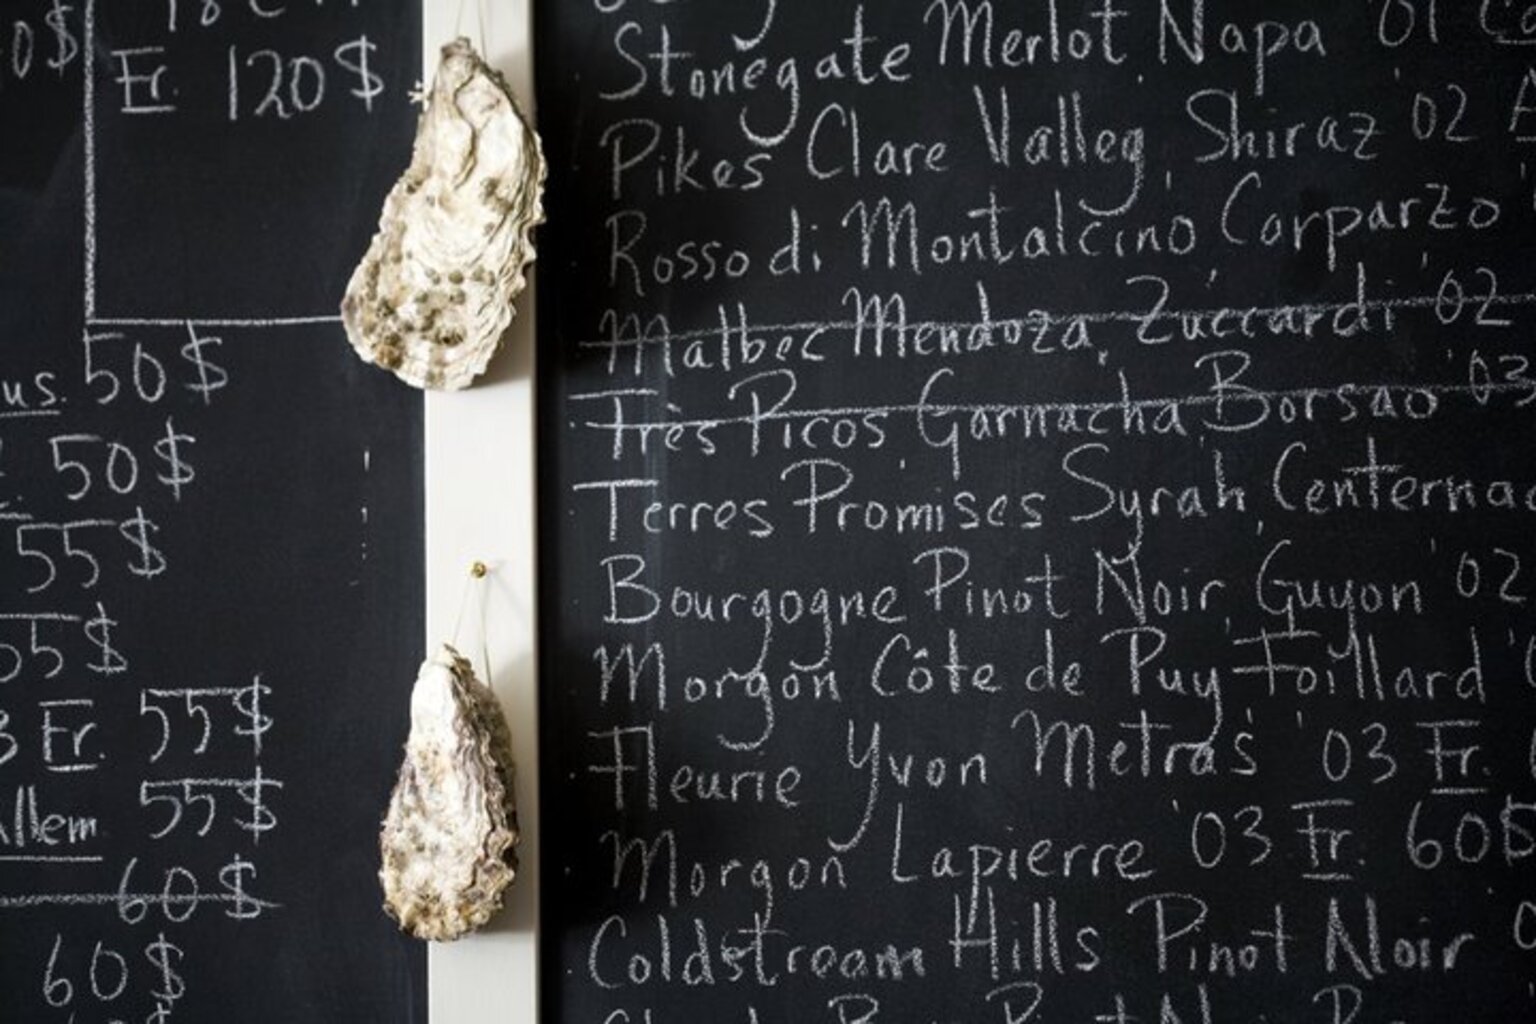 0$
Fr. 120$
us. 50$
50$
55$
55$
Fr. 55$
Allem 55$
60$
60$
Stonegate Merlot Napa '01
Pikes Clare Valley, Shiraz '02 A
Rosso di Montalcino Carparzo
Malbec Mendoza, Zuccardi '02
Très Picos Garnacha Borsao '03
Terres Promises Syrah, Centerna
Bourgogne Pinot Noir, Guyon '02
Morgon Côte de Puy Foillard
Fleurie Yvon Metras '03 Fr.
Morgon Lapierre '03 Fr. 60$
Coldstream Hills Pinot Noir